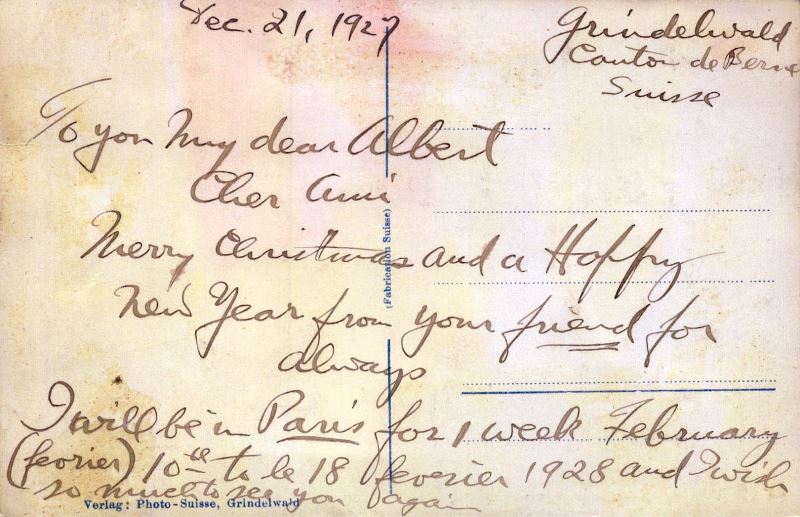 Dec. 21, 1927
Grindelwald
Canton de Berne
Suisse
To you my dear Albert
Cher Ami
Merry Christmas and a Happy
New Year from your friend for
always
I will be in Paris for 1 week February
(fevrier) 10th to le 18 fevrier 1928 and I wish
so much to see you again
(Fabrication Suisse)
Verlag: Photo-Suisse, Grindelwald